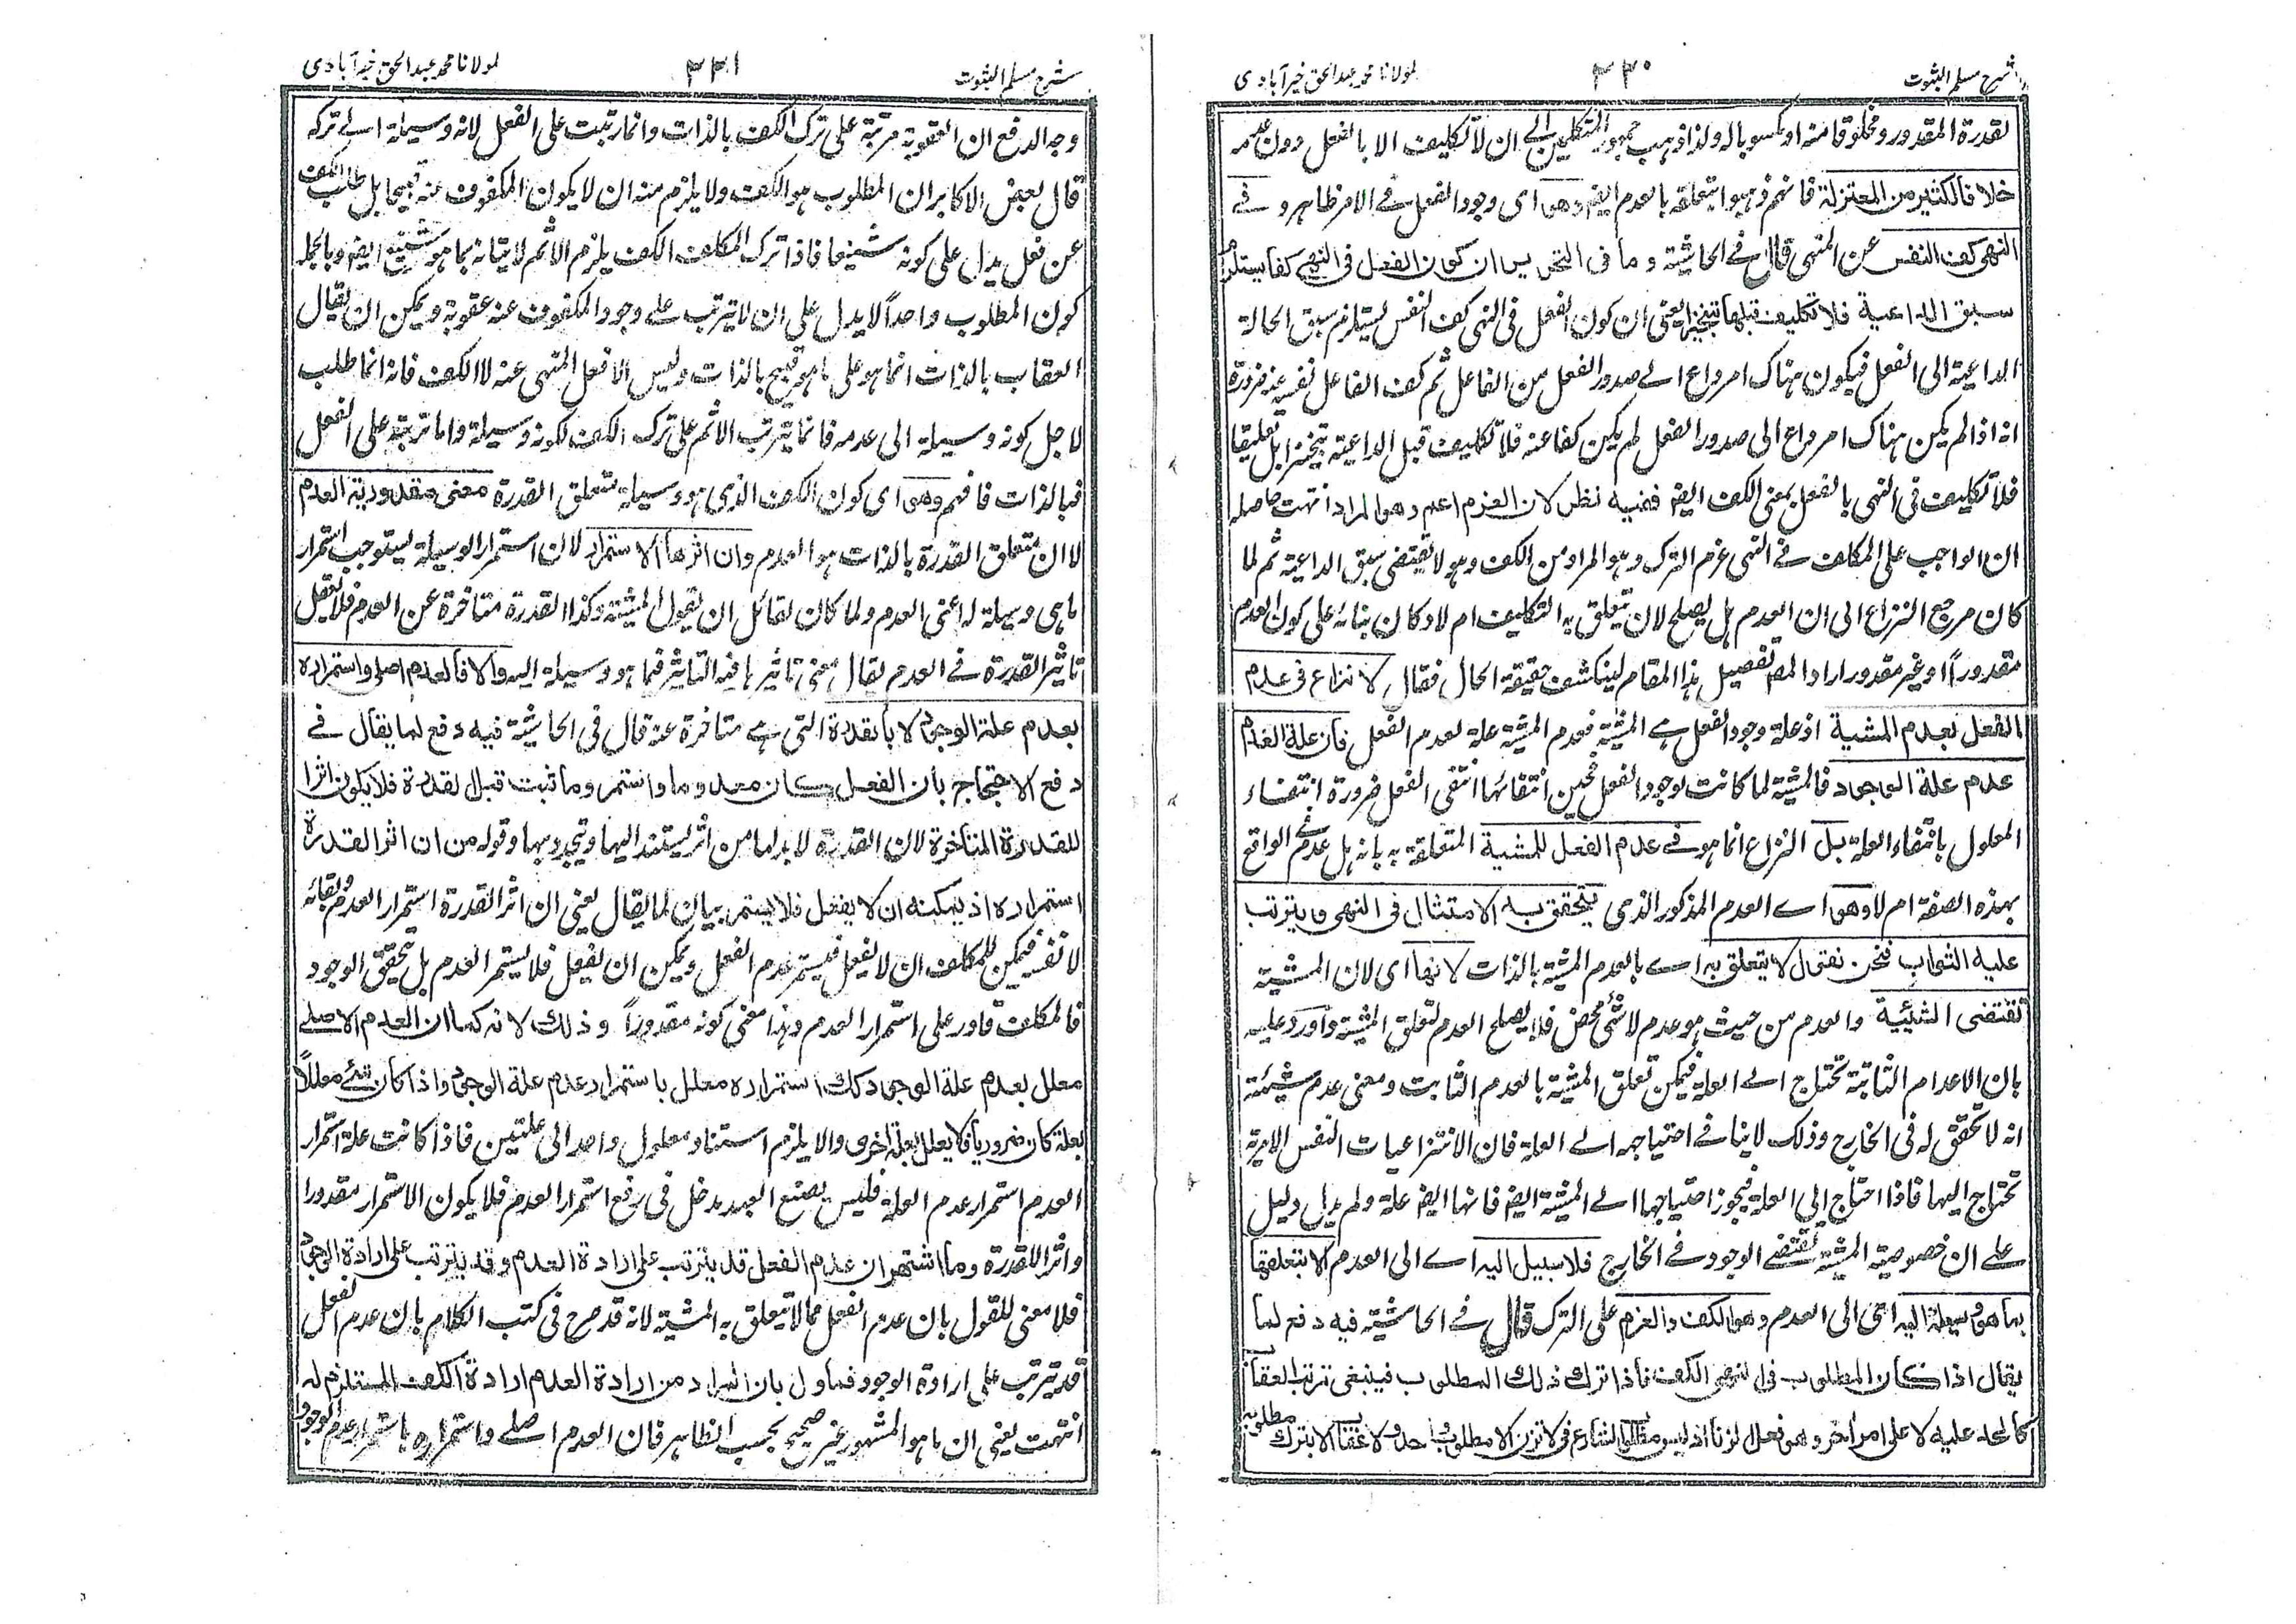 شرح مسلم الثبوت
٣٣٠
لمولانا محمد عبدالحق خيرآبادى
لقدرة المقدور ومخلوقا منه او مكسوبا له ولذا ذهب جمهور المتكلمين الى ان لا تكليف الا بالفعل دون عدمه
خلافا لكثير من المعتزلة فانهم ذهبوا الى تعلقه بالعدم ايضا وهو اى وجود الفعل فى الامر ظاهر و فى
النهى كف النفس عن المنهى قال فى الحاشية و ما فى التحرير ان كون الفعل فى النهى كفا يستلزم
سبق الداعية فلا تكليف قبلها تنجيزا يعنى ان كون الفعل فى النهى كف النفس يستلزم سبق الحالة
الداعية الى الفعل فيكون هناك امر داع الى صدور الفعل من الفاعل ثم كف الفاعل نفسه عنه ضرورة
انه اذا لم يكن هناك امر داع الى صدور الفعل لم يكن كفا عنه فلا تكليف قبل الداعية تنجيزا بل تعليقا
فلا تكليف فى النهى بالفعل بمعنى الكف ايضا ففيه نظر لان العزم اعم وهو المراد انتهت حاصله
ان الواجب على المكلف فى النهى عزم الترك وهو المراد من الكف وهو لا يقتضى سبق الداعية ثم لما
كان مرجع النزاع الى ان العدم هل يصلح لان يتعلق به التكليف ام لا وكان بنائه على كون العدم
مقدورا او غير مقدور اراد المصـ تفصيل هذا المقام لينكشف حقيقة الحال فقال لا نزاع فى عدم
الفعل بعدم المشية اذ علة وجود الفعل هى المشية فعدم المشية علة لعدم الفعل فان علة العدم
عدم علة الوجود فالمشية لما كانت لوجود الفعل فحين انتفائها انتفى الفعل ضرورة انتفاء
المعلول بانتفاء العلة بل النزاع انما هو فى عدم الفعل للمشية المتعلقة به بانه هل عدم الواقع
بهذه الصفة ام لا وهو اى العدم المذكور الذى يتحقق به الامتثال فى النهى و يترتب
عليه الثواب فنحن نقول لا يتعلق به اى بالعدم المشية بالذات لانها اى لان المشية
تقتضى الشيئية والعدم من حيث هو عدم لا شئ محض فلا يصلح العدم لتعلق المشية واورد عليه
بان الاعدام الثابتة تحتاج الى العلة فيمكن تعلق المشية بالعدم الثابت ومعنى عدم شيئيته
انه لا تحقق له فى الخارج وذلك لا ينافى احتياجه الى العلة فان الانتزاعيات النفس الامرية
تحتاج اليها فاذا احتاج الى العلة فيجوز احتياجها الى المشية ايضا فانها ايضا علة ولم يدل دليل
على ان خصوصية المشية تقتضى الوجود فى الخارج فلا سبيل اليه اى الى العدم الا بتعلقها
بما هو وسيلة اليه اعنى الى العدم وهو الكف والعزم على الترك قال فى الحاشية فيه دفع لما
يقال اذا كان المطلوب فى النهى الكف فاذا ترك ذلك المطلوب فينبغى ترتب العقاب
كالحد عليه لا على امر آخر وهو فعل الزنا اذ ليس مطلوب الشارع فى لا تزن الا مطلوب واحد ولا عقاب الا بترك مطلوبه
شرح مسلم الثبوت
٣٣١
لمولانا محمد عبدالحق خيرآبادى
وجه الدفع ان العقوبة مرتبة على ترك الكف بالذات وانما رتبت على الفعل لانه وسيلة الى تركه
قال بعض الاكابر ان المطلوب هو الكف ولا يلزم منه ان لا يكون المكفوف عنه قبيحا بل طلب الكف
عن فعل يدل على كونه شنيعا فاذا ترك المكلف الكف يلزم الاثم لاتيانه بما هو شنيع ايضا وبالجملة
كون المطلوب واحداً لا يدل على ان لا يترتب على وجود المكفوف عنه عقوبة ويمكن ان يقال
العقاب بالذات انما هو على ما هو قبيح بالذات وليس الا فعل المنهى عنه لا الكف فانه انما طلب
لاجل كونه وسيلة الى عدمه فانما يترتب الاثم على ترك الكف لكونه وسيلة واما ترتبه على الفعل
فبالذات فافهم وهو اى كون الكف الذى هو وسيلة متعلق القدرة معنى مقدورية العدم
لا ان متعلق القدرة بالذات هو العدم وان اثرها الاستمرار لان استمرار الوسيلة يستوجب استمرار
ما هى وسيلة له اعنى العدم ولما كان لقائل ان يقول المشية وكذا القدرة متاخرة عن العدم فلا يعقل
تاثير القدرة فى العدم يقال معنى تاثيرها فيه التاثير فيما هو وسيلة اليه والا فالعدم اصلى واستمراره
بعدم علة الوجود لا بالقدرة التى هى متاخرة عنه قال فى الحاشية فيه دفع لما يقال فى
دفع الاحتجاج بان الفعل كان معدوما واستمر وما ثبت قبل القدرة فلا يكون اثرا
للقدرة المتأخرة لان القدرة لا بد لها من اثر يستند اليها ويتجدد بها وقوله من ان اثر القدرة
استمراره اذ يمكنه ان لا يفعل فلا يستمر بيان لما يقال يعنى ان اثر القدرة استمرار العدم وبقائه
لا نفسه فيمكن للمكلف ان لا يفعل فيستمر عدم الفعل ويمكن ان يفعل فلا يستمر العدم بل تحقق الوجود
فالمكلف قادر على استمرار العدم وهذا معنى كونه مقدوراً وذلك لانه كما ان العدم الاصلى
معلل بعدم علة الوجود كذلك استمراره معلل باستمرار عدم علة الوجود واذا كان شئ معللاً
بعلة كان ضروريا فلا يعلل بعلة اخرى والا يلزم استناد معلول واحد الى علتين فاذا كانت علة استمرار
العدم استمرار عدم العلة فليس يصنع العبد دخل فى رفع استمرار العدم فلا يكون الاستمرار مقدورا
واثر القدرة وما اشتهر ان عدم الفعل قد يترتب على ارادة العدم وقد يترتب على ارادة الوجود
فلا معنى للقول بان عدم الفعل مما لا يتعلق به المشية لانه قد صرح فى كتب الكلام بان عدم الفعل
قد يترتب على ارادة الوجود فماول بان المراد من ارادة العدم ارادة الكف المستلزم له
انتهت يعنى ان ما هو المشهور غير صحيح بحسب الظاهر فان العدم اصلى واستمراره باستمرار عدم الوجود